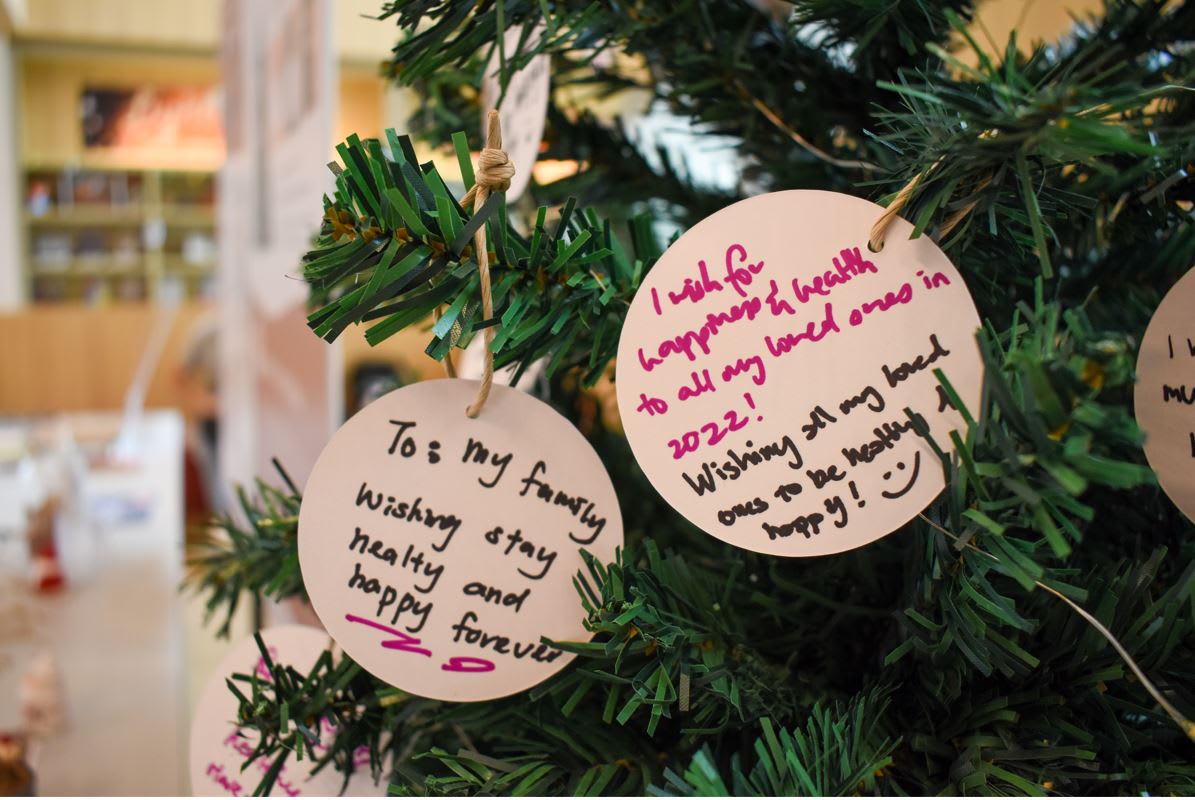 To: my family
Wishing stay
healty and
happy forever
I wish for
happiness & health
to all my loved ones in
2022!
Wishing all my loved
ones to be healthy &
happy! :)
I
mu